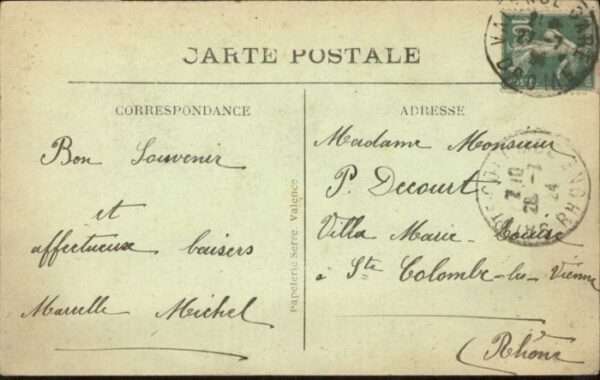 CARTE POSTALE
CORRESPONDANCE
Bon Souvenir
et
affectueux baisers
Marcelle Michel
Papeterie Serre, Valence
ADRESSE
Madame Monsieur
P. Decourt
Villa Marie-Louise
à Ste Colombe-les-Vienne
Rhône
DROME
7.10
28
24
RHONE